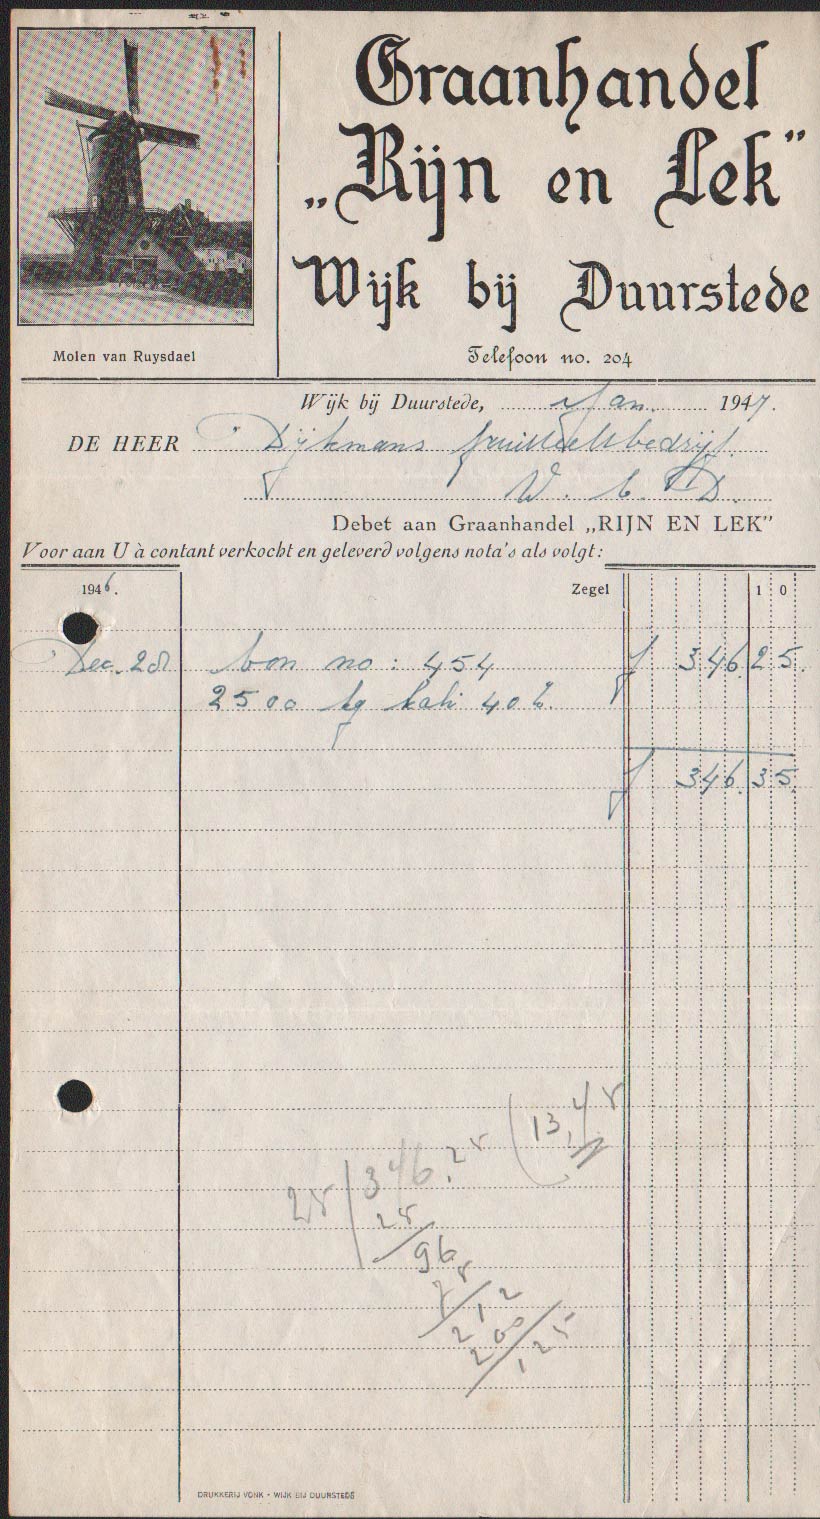 Graanhandel
„Rijn en Lek”
Wijk bij Duurstede
Telefoon no. 204
Molen van Ruysdael
Wijk bij Duurstede, Jan. 1947.
DE HEER Dijkmans fruitteeltbedrijf.
W. b. D.
Debet aan Graanhandel „RIJN EN LEK”
Voor aan U à contant verkocht en geleverd volgens nota's als volgt:
1946. Zegel 10
Dec. 28 bon no: 454 f 346.25.
2500 kg kali 40%.
f 346.35
13,
346.25
96
212
200
125
DRUKKERIJ VONK • WIJK BIJ DUURSTEDE